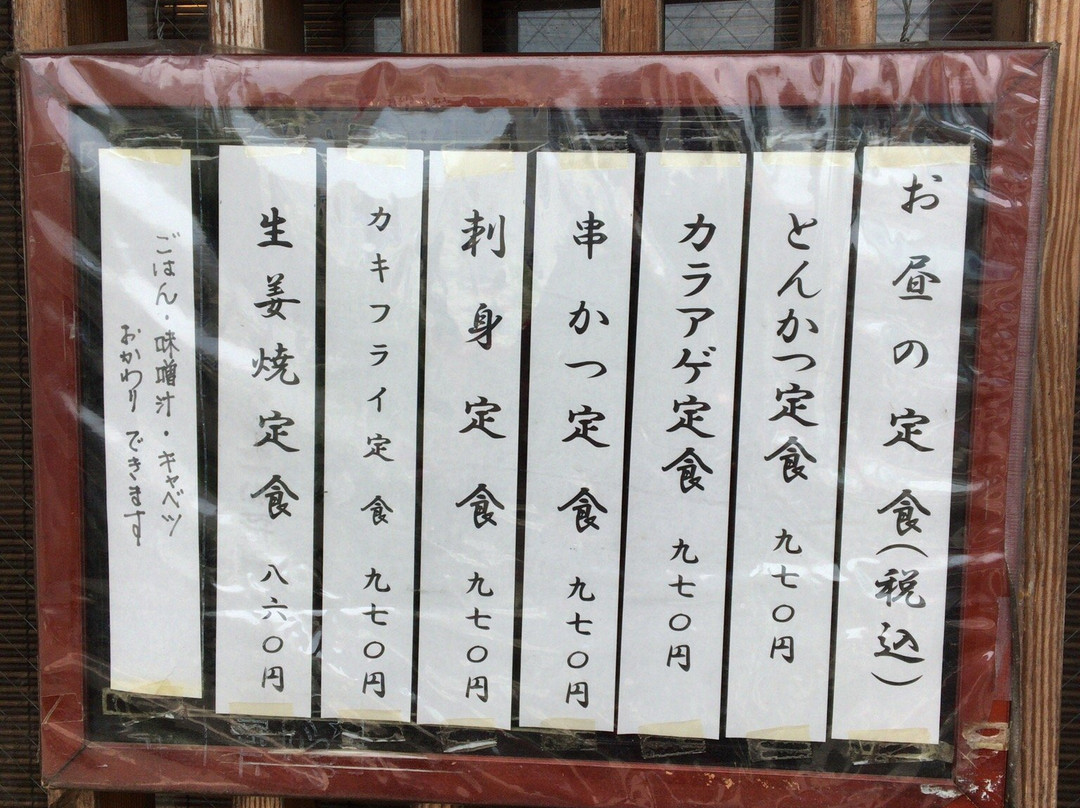 お昼の定食(税込)
とんかつ定食 九七〇円
カラアゲ定食 九七〇円
串かつ定食 九七〇円
刺身定食 九七〇円
カキフライ定食 九七〇円
生姜焼定食 八六〇円
ごはん・味噌汁・キャベツ
おかわりできます